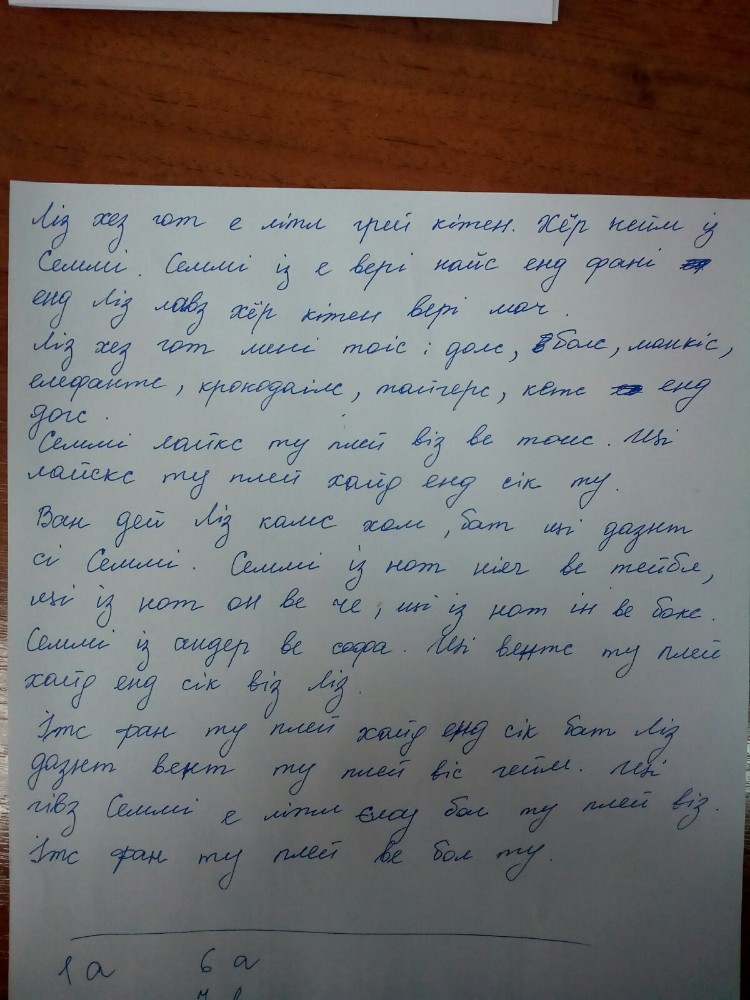 Ліз хез гот е літл грей кітен. Хёр нейм із
Семмі. Семмі із е вері найс енд фані
енд Ліз лавз хёр кітен вері мач.
Ліз хез гот мені тоіс: долс, болс, манкіс,
елефантс, крокодаілс, тайгерс, кетс енд
догс.
Семмі лайкс ту плей віз ве тоис. Ші
лайскс ту плей хайд енд сік ту.
Ван дей Ліз камс хом, бат ші дазнт
сі Семмі. Семмі із нот ніег ве тейбл,
ші із нот он ве че, ші із нот ін ве бокс.
Семмі із андер ве софа. Ші вентс ту плей
хайд енд сік віз Ліз.
Ітс фан ту плей хайд енд сік бат Ліз
дазнт вент ту плей віс гейм. Ші
гівз Семмі е літл елоу бол ту плей віз.
Ітс фан ту плей ве бол ту.
1 а 6 а